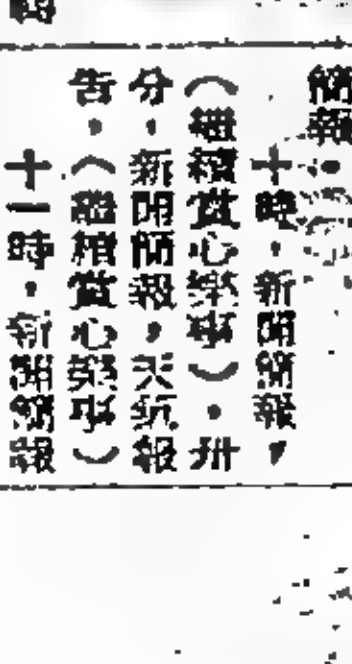 簡報。
十時，新聞簡報，
（繼續賞心樂事）。卅
分，新聞簡報，天氣報
告，（繼續賞心樂事）
十一時，新聞簡報